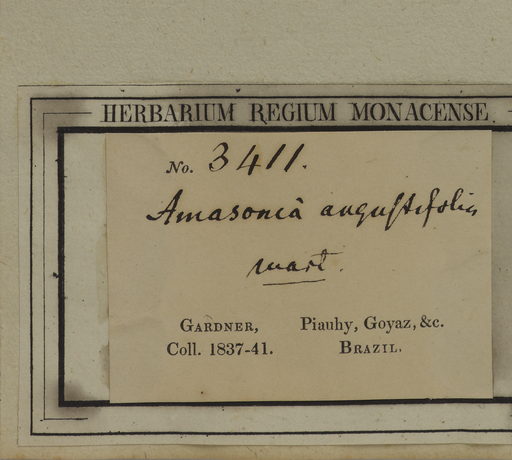 HERBARIUM REGIUM MONACENSE.
No. 3411.
Amasonia angustifolia
mart.
GARDNER,
Coll. 1837-41.
Piauhy, Goyaz, &c.
BRAZIL.